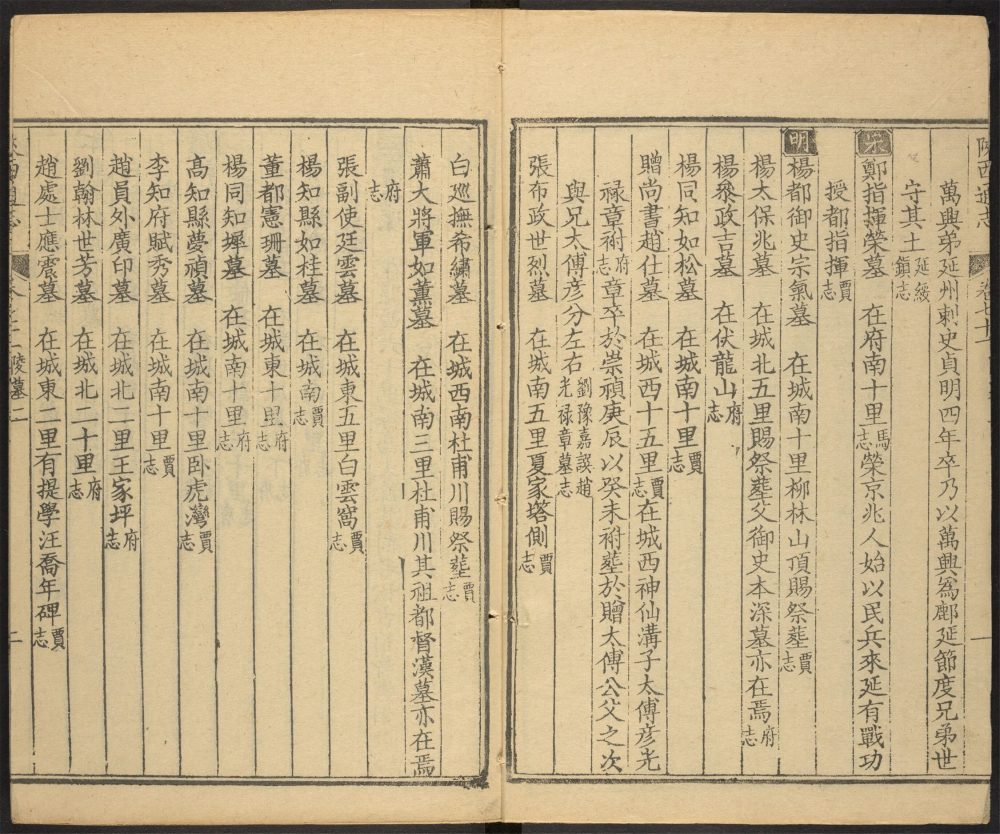 陝西通志 卷七十一 一
萬興弟延州刺史貞明四年卒乃以萬興為鄜延節度兄弟世
守其土延綏鎮志
宋 鄭指揮榮墓 在府南十里馬志榮京兆人始以民兵來延有戰功
授都指揮賈志
明 楊都御史宗氣墓 在城南十里柳林山頂賜祭塟賈志
楊太保兆墓 在城北五里賜祭塟父御史本深墓亦在焉府志
楊叅政吉墓 在伏龍山府志
楊同知如松墓 在城南十里賈志
贈尚書趙仕墓 在城西十五里賈志在城西神仙溝子太傅彦光
禄章祔府志章卒於崇禎庚辰以癸未祔塟於贈太傅公父之次
與兄太傅彦分左右劉豫嘉譔趙光禄章墓志
張布政世烈墓 在城南五里夏家塔側賈志
白廵撫希繡墓 在城西南杜甫川賜祭塟賈志
蕭大將軍如薰墓 在城南三里杜甫川其祖都督漢墓亦在焉
府志
張副使廷雲墓 在城東五里白雲窩賈志
楊知縣如桂墓 在城南賈志
董都憲珊墓 在城東十里府志
楊同知墀墓 在城南十里府志
高知縣夢禎墓 在城南十里卧虎灣賈志
李知府賦秀墓 在城南十里賈志
趙員外廣印墓 在城北二里王家坪府志
劉翰林世芳墓 在城北二十里府志
趙處士應震墓 在城東二里有提學汪喬年碑賈志
陵墓二 二